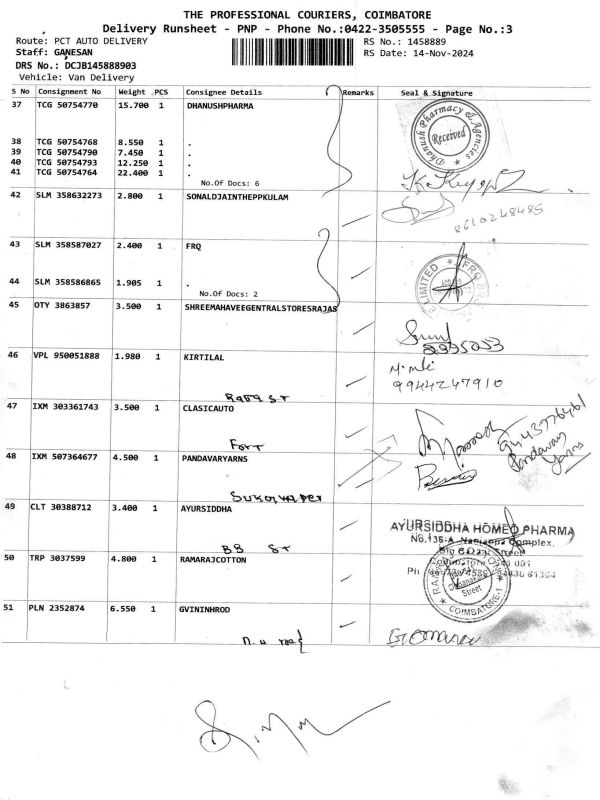 THE PROFESSIONAL COURIERS, COIMBATORE
Delivery Runsheet - PNP - Phone No.:0422-3505555 - Page No.:3
Route: PCT AUTO DELIVERY RS No.: 1458889
Staff: GANESAN RS Date: 14-Nov-2024
DRS No.: DCJB145888903
Vehicle: Van Delivery
S No Consignment No Weight PCS Consignee Details Remarks Seal & Signature
37 TCG 50754770 15.700 1 DHANUSHPHARMA
Dhanush Pharmacy & Agencies
Received
38 TCG 50754768 8.550 1 .
39 TCG 50754790 7.450 1 .
40 TCG 50754793 12.250 1 .
41 TCG 50754764 22.400 1 .
No.Of Docs: 6
42 SLM 358632273 2.800 1 SONALDJAINTHEPPKULAM
8610248485
43 SLM 358587027 2.400 1 FRQ
LIMITED
44 SLM 358586865 1.905 1 .
No.Of Docs: 2
45 OTY 3863857 3.500 1 SHREEMAHAVEEGENTRALSTORESRAJAS
46 VPL 950051888 1.980 1 KIRTILAL
9944247910
47 IXM 303361743 3.500 1 CLASICAUTO
Fort
48 IXM 507364677 4.500 1 PANDAVARYARNS
49 CLT 30388712 3.400 1 AYURSIDDHA
AYURSIDDHA HOMEO PHARMA
NO.136-A, Nanjappa Complex,
BB St
50 TRP 3037599 4.800 1 RAMARAJCOTTON
Street
COIMBATORE-1
51 PLN 2352874 6.550 1 GVININHROD